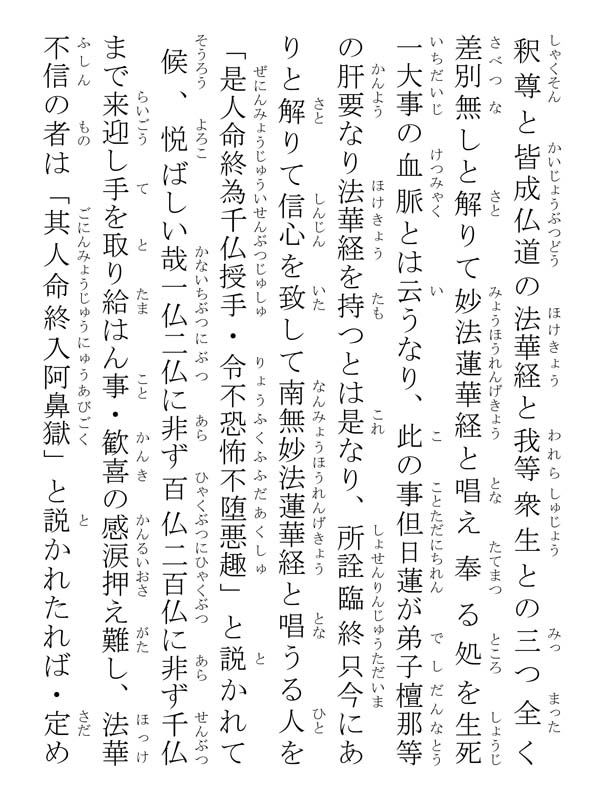 釈尊と皆成仏道の法華経と我等衆生との三つ全く
差別無しと解りて妙法蓮華経と唱え奉る処を生死
一大事の血脈とは云うなり、此の事但日蓮が弟子檀那等
の肝要なり法華経を持つとは是なり、所詮臨終只今にあ
りと解りて信心を致して南無妙法蓮華経と唱うる人を
「是人命終為千仏授手・令不恐怖不堕悪趣」と説かれて
候、悦ばしい哉一仏二仏に非ず百仏二百仏に非ず千仏
まで来迎し手を取り給はん事・歓喜の感涙押え難し、法華
不信の者は「其人命終入阿鼻獄」と説かれたれば・定め